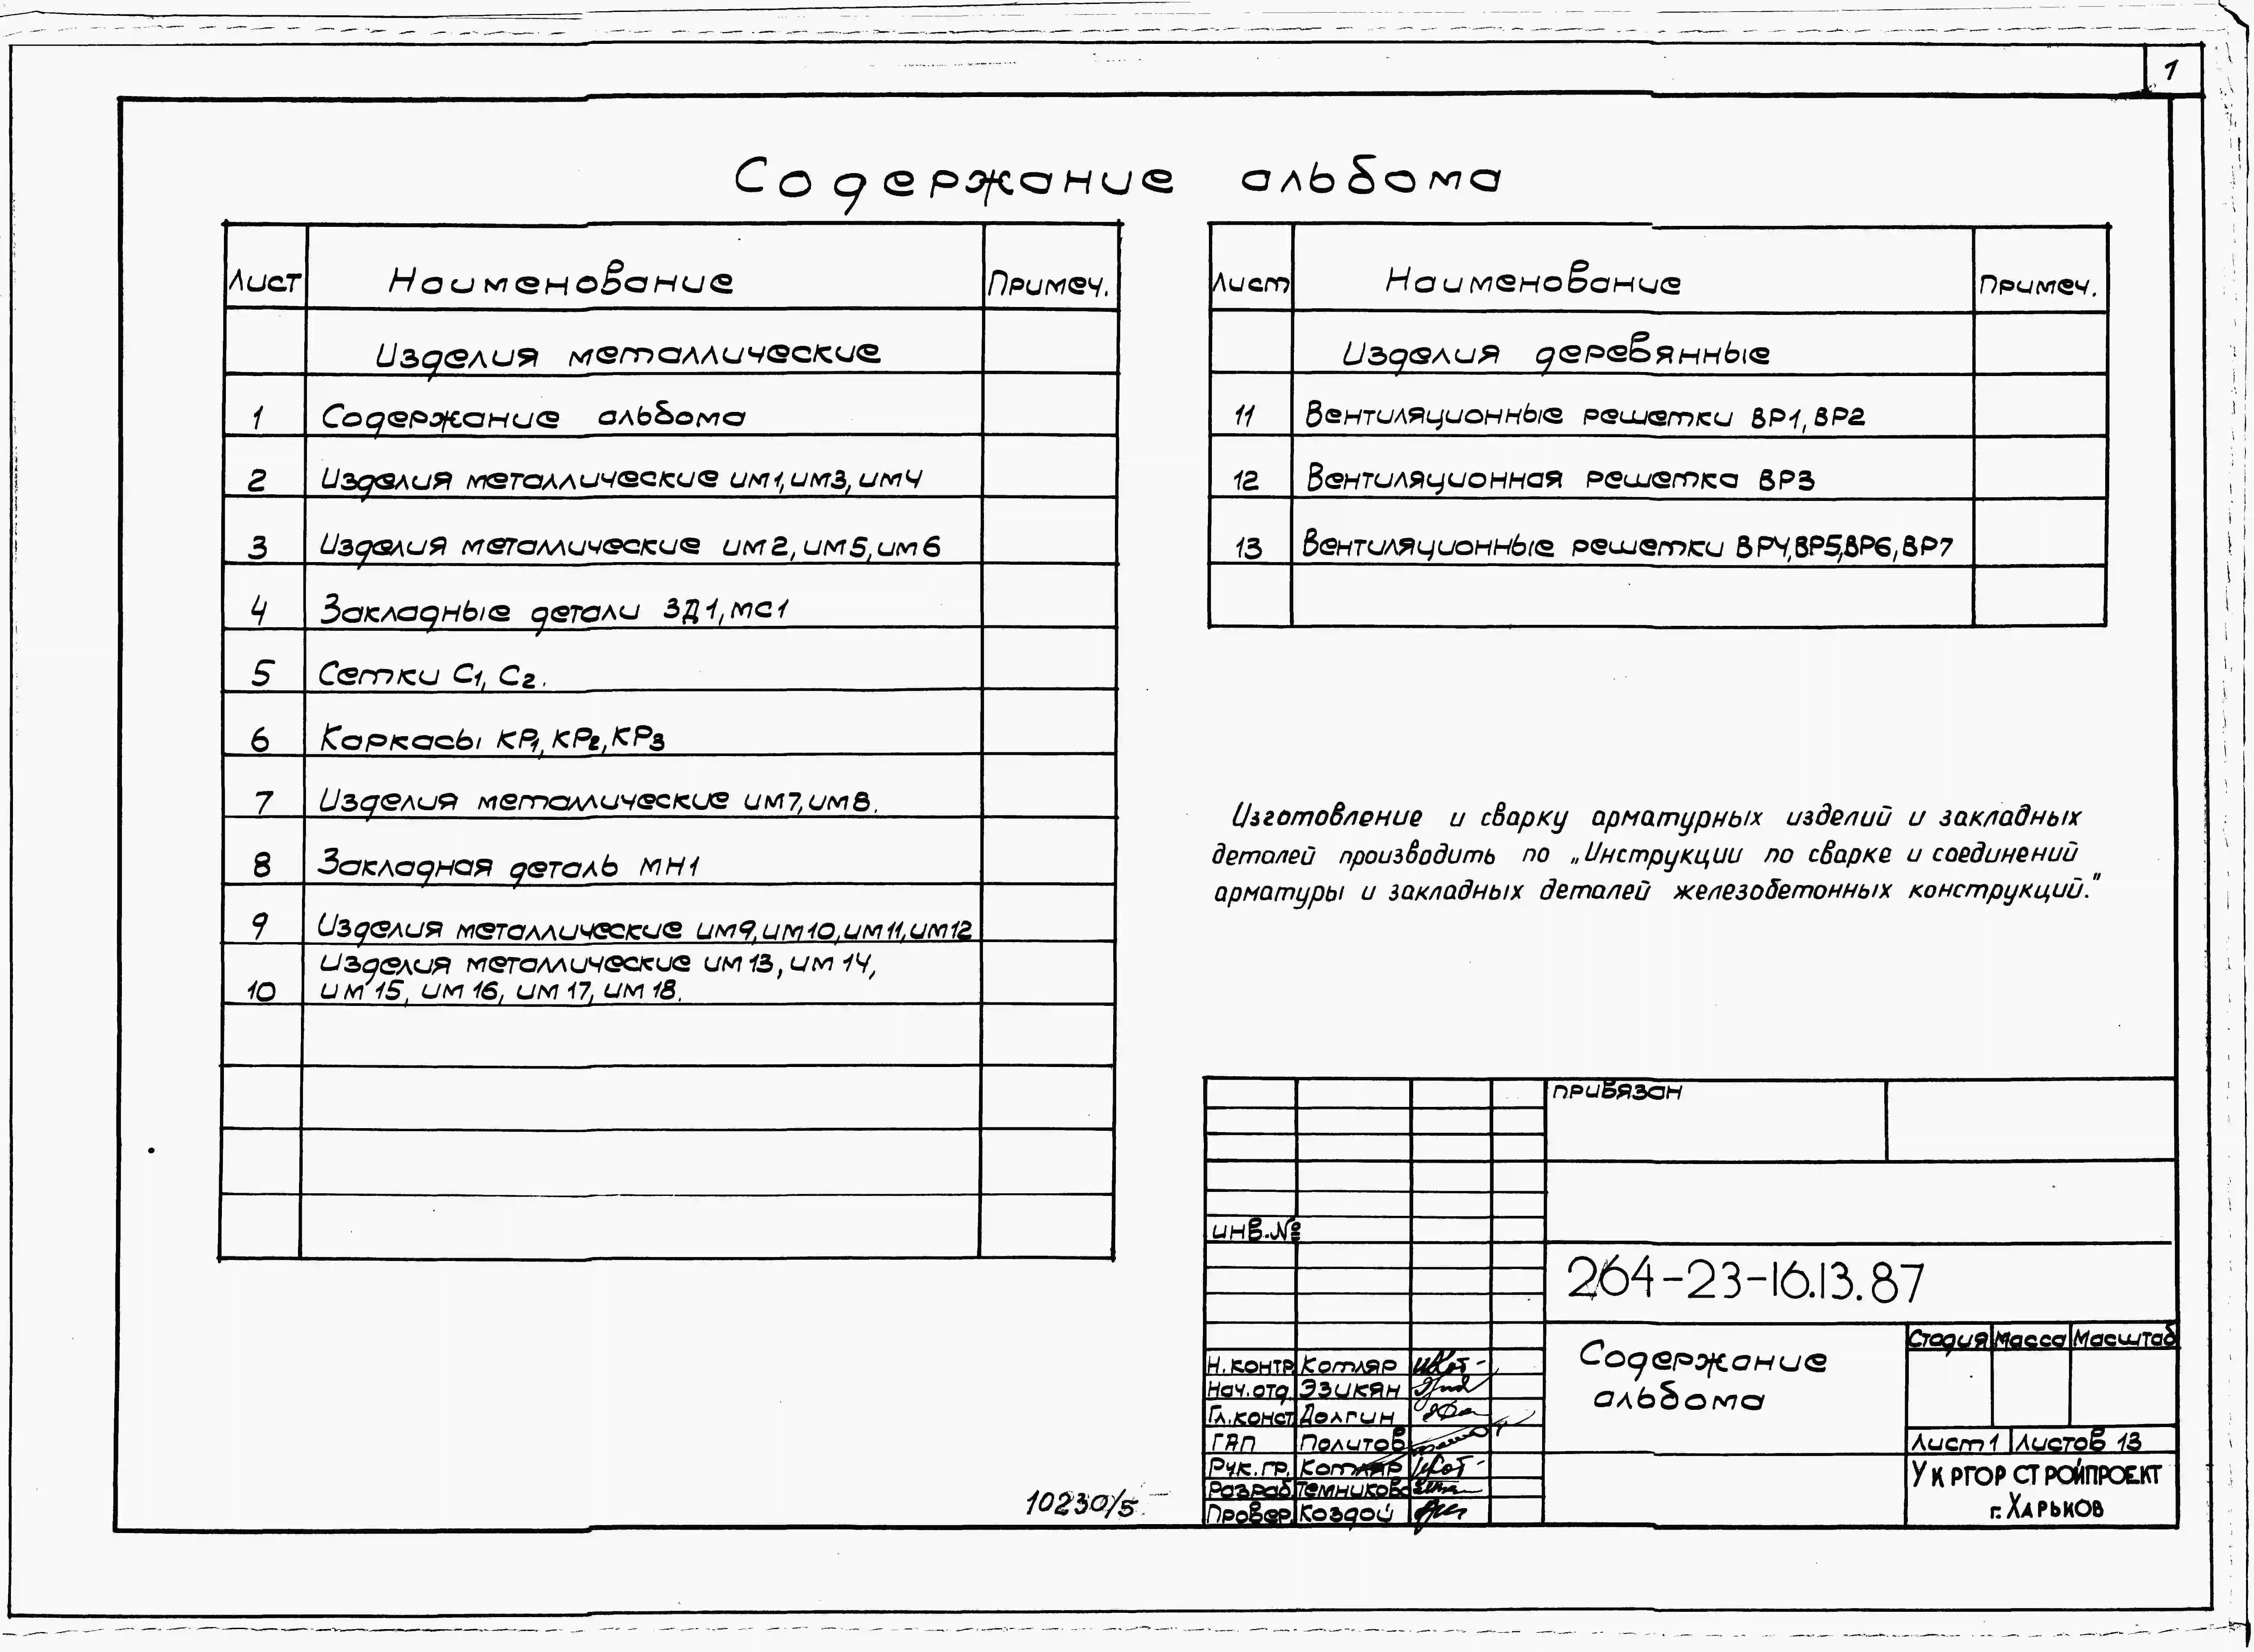 1
Содержание альбома
Лист Наименование Примеч.
Изделия металлические
1 Содержание альбома
2 Изделия металлические им1, им3, им4
3 Изделия металлические им2, им5, им6
4 Закладные детали ЗД1, мс1
5 Сетки С1, С2.
6 Каркасы КР1, КР2, КР3
7 Изделия металлические им7, им8.
8 Закладная деталь МН1
9 Изделия металлические им9, им10, им11, им12
Изделия металлические им13, им14,
10 им15, им16, им17, им18.
Лист Наименование Примеч.
Изделия деревянные
11 Вентиляционные решетки ВР1, ВР2
12 Вентиляционная решетка ВР3
13 Вентиляционные решетки ВР4, ВР5, ВР6, ВР7
Изготовление и сварку арматурных изделий и закладных
деталей производить по „Инструкции по сварке и соединений
арматуры и закладных деталей железобетонных конструкций."
привязан
инв.№
264-23-16.13.87
Содержание
альбома
Стадия Масса Масштаб
Лист 1 Листов 13
Укргорстройпроект
г. Харьков
Н.контр Котляр
Нач.отд. Эзикян
Гл.конст Долгин
ГАП Политов
Рук.гр. Котляр
Разраб. Темникова
Провер. Коздой
10230/5